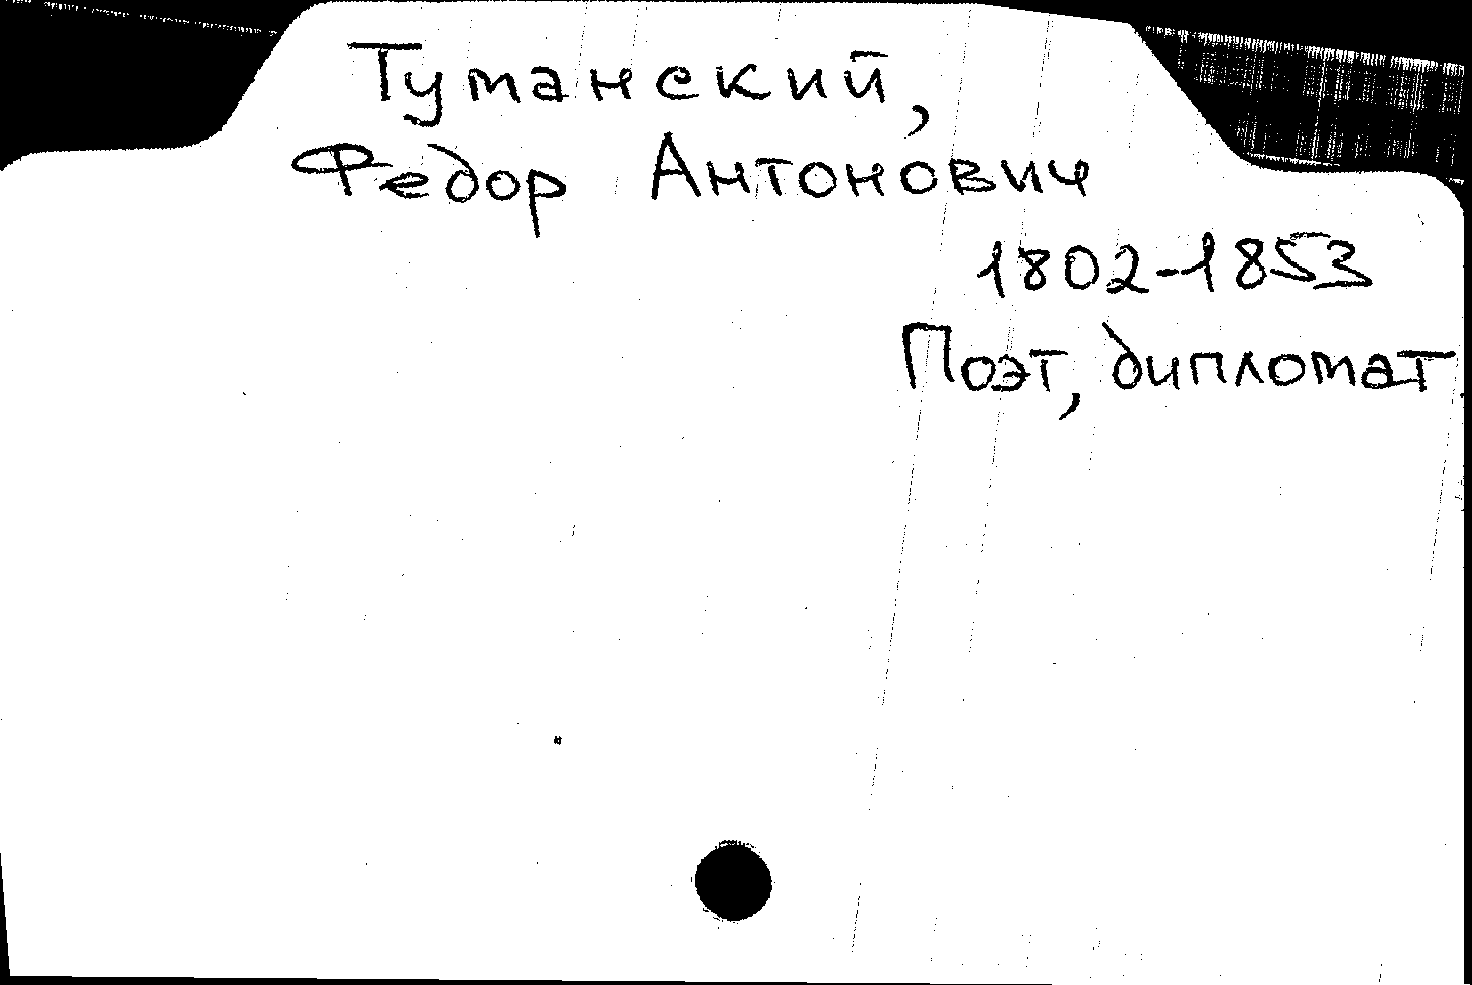 Туманский,
Федор Антонович
1802-1853
Поэт, дипломат